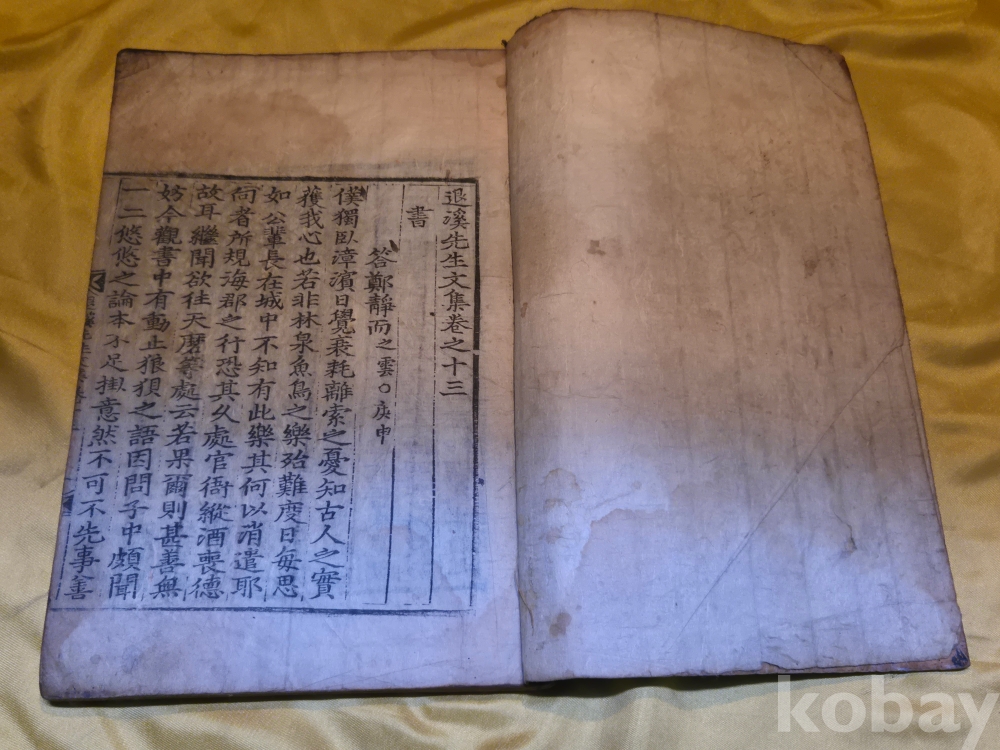 退溪先生文集卷之十三
書
答鄭靜而之雲○庚申
僕獨臥漳濱日覺衰耗離索之憂知古人之實
獲我心也若非林泉魚鳥之樂殆難度日每思
如公輩長在城中不知有此樂其何以消遣耶
向者所規海郡之行恐其久處官衙縱酒喪德
故耳繼聞欲往天磨等處云若果爾則甚善無
妨今觀書中有動止狼狽之語因問子中頗聞
一二悠悠之論本不足掛意然不可不先事善
kobay